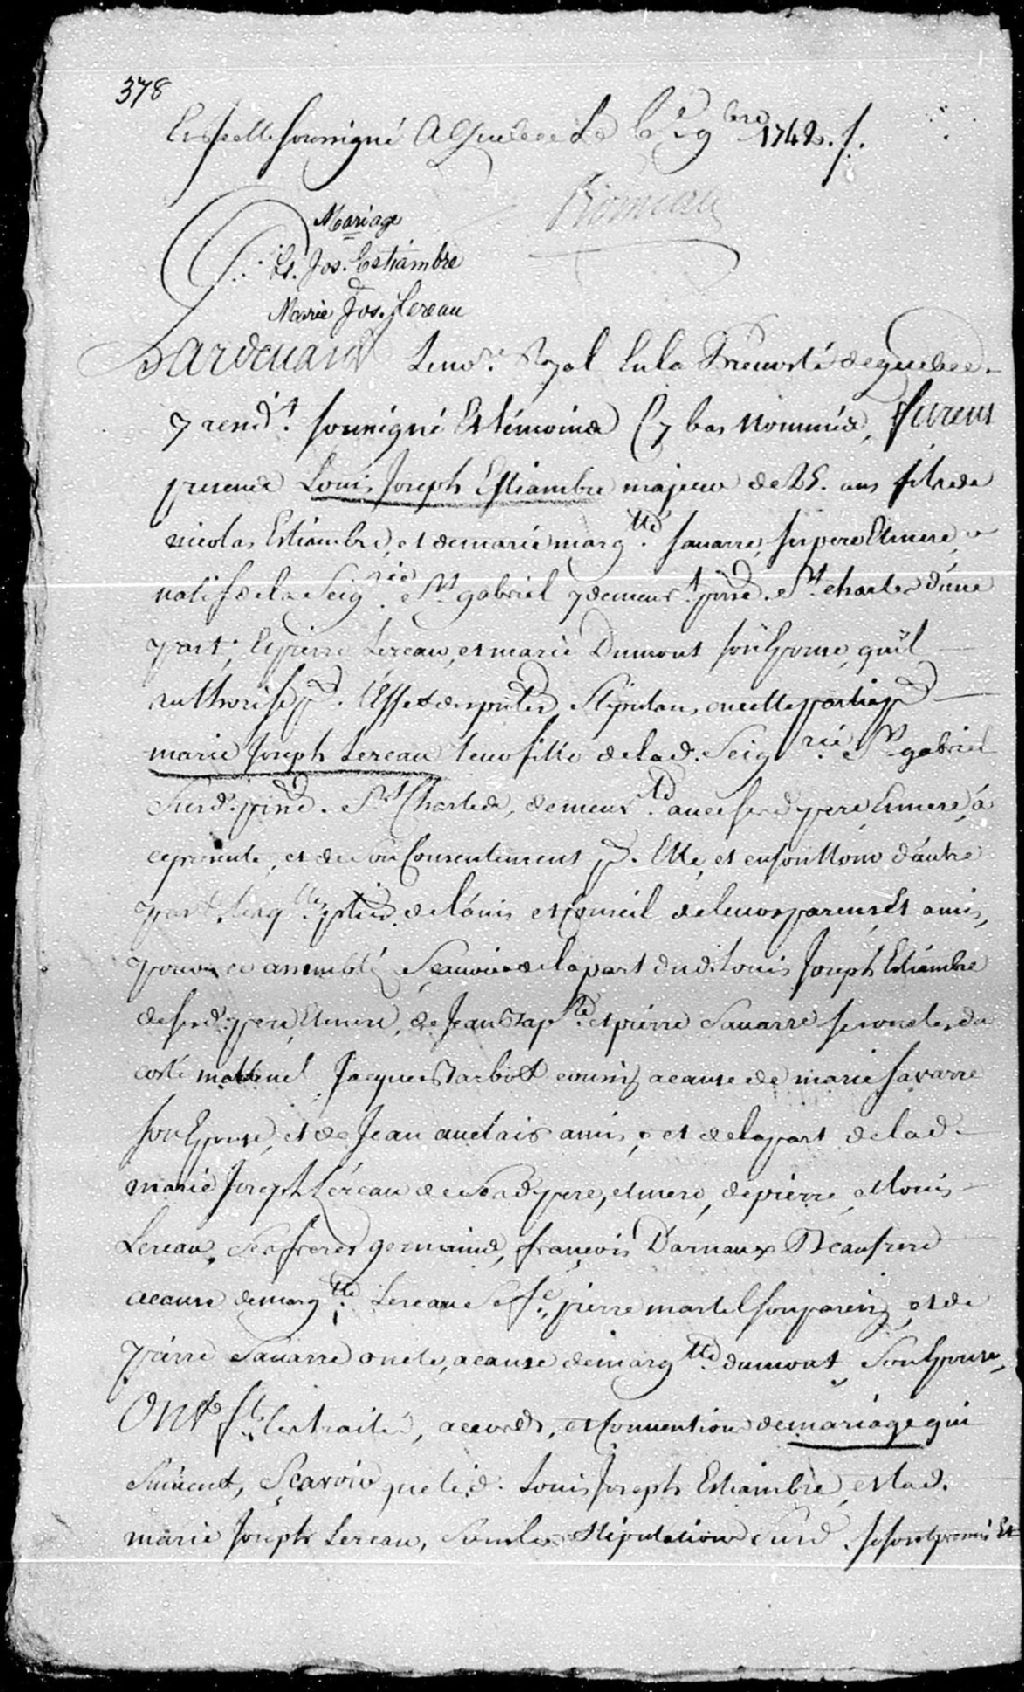 378
soussigné A Quebec Le 9bre 1742 ./.
Romain
Mariage
Ls. Jos. Estiambre
&
Marie Jos. Lereau
Pardevant Le nore. Royal En la Prevosté de quebec
y resid.t soussigné Et témoins Cy bas Nommés, furent
presents Louis Joseph Estiambre majeur de 25. ans fils de
nicolas Estiambre, et de marie marg.tte sauarre, ses pere Et mere,
natif de la Seig.rie St gabriel y demeur.t paroisse St charles d'une
part, Et pierre Lereau, et marie Dumont son Epouse, qu'il
authorise pr. l'Effet des p.ntes Stipulans en cette partie pr
marie Joseph Lereau leur fille de lad. Seig.rie St gabriel
Susd. St Charles, demeur.te avec sesd. pere Et mere, a
ce presente, et de son Consentement pr. Elle, et en son Nom d'autre
part, Lesq.lles p.ties de l'avis et Conseil de leurs parens Et amis,
pour ce assemblés Scavoir de la part dud. Louis Joseph Estiambre
de sesd. pere Et mere, de Jean Bap.te et pierre Sauarre ses oncles du
costé maternel Jacques Barbot cousin a cause de marie savarre
son Epouse, et de Jean auclair amis; et de la part de lad.
marie Joseph Lereau de Sesd. pere, et mere, de pierre, et Louis
Lereau, Ses freres germains, françois Darnaux Beaufrere
a cause de marg.tte Lereau Sa fe. pierre martel son parein, et de
pierre Sauarre oncle, a cause de marg.tte dumont Son Epouse,
Ont f.t les traités, accords, et Convention de mariage qui
Suivent, Scavoir que led. Louis Joseph Estiambre, et lad.
marie Joseph Lereau, Sous les Stipulations Susd. se sont promis Et